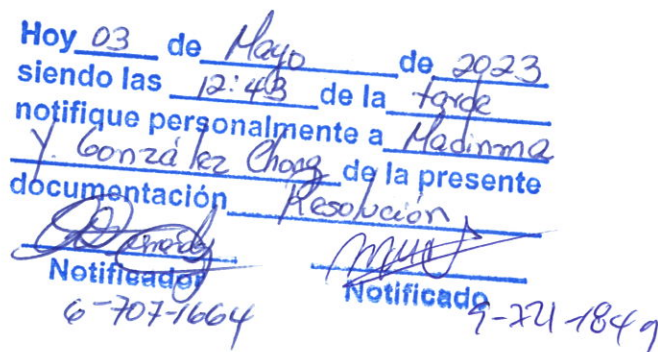 Hoy 03 de Mayo de 2023
siendo las 12:43 de la tarde
notifique personalmente a Madinma
Y. González Chong de la presente
documentación Resolución
Notificador Notificado
6-707-1664 9-721-1849